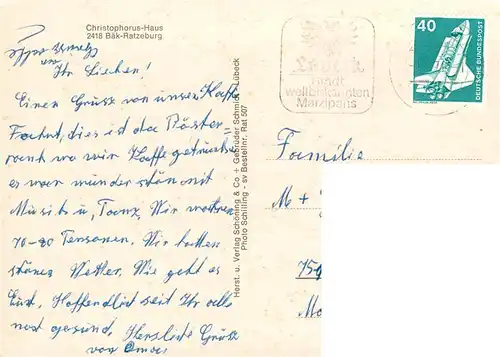 Christophorus-Haus
2418 Bäk-Ratzeburg
Ihr Lieben!
Einen Grüss von unser Kaffe
Fahrt, dies ist da Röster
rant wo wir Kaffe getrunken
er war wunder schön mit
Müsik u, Tanz, Wir waren
70-80 Personen. Wir hatten
schönes Wetter. Wie geht es
Eüch, Hoffendlich seit Ihr alle
noch gesund. Herzliche Grüsse
von Omas
Herst. u. Verlag Schöning & Co + Gebrüder Schmidt, Lübeck
Photo Schilling - sv Bestellnr. Rat 507
Stadt
weltbekannten
Marzipans
40
DEUTSCHE BUNDESPOST
Familie
M +
759